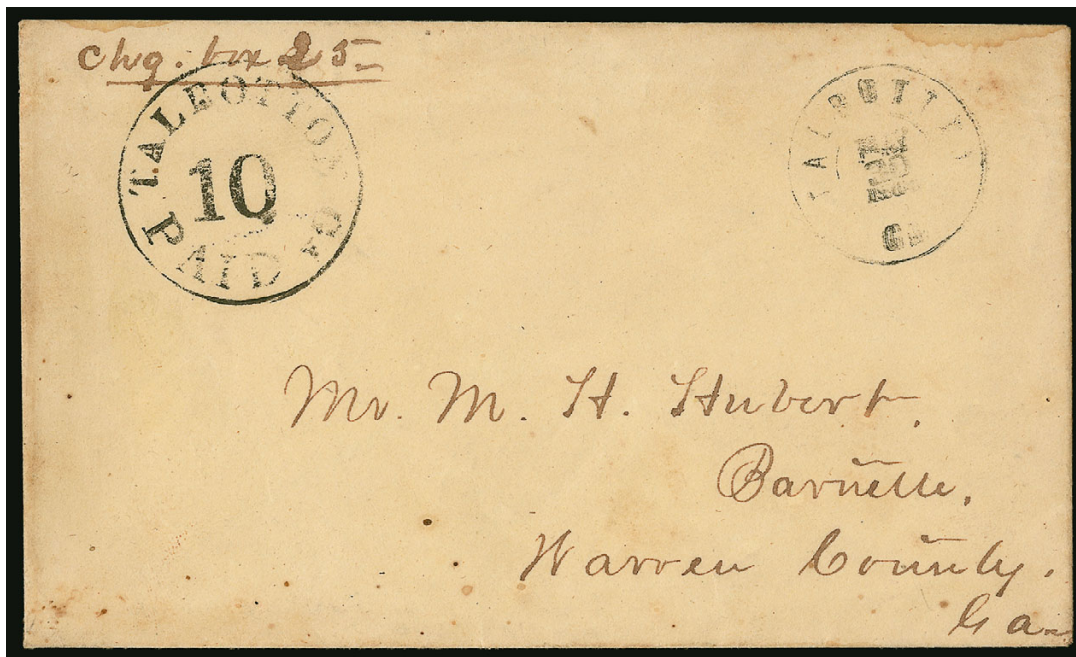 Chg. box 25
TALBOTTON Ga.
10
PAID
TALBOTTON
Ga
Mr. M. H. Hubert,
Barnette,
Warren County.
Ga